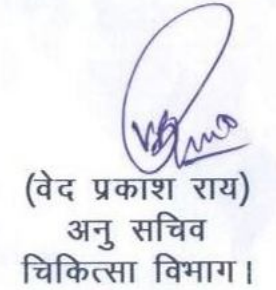 (वेद प्रकाश राय)
अनु सचिव
चिकित्सा विभाग।